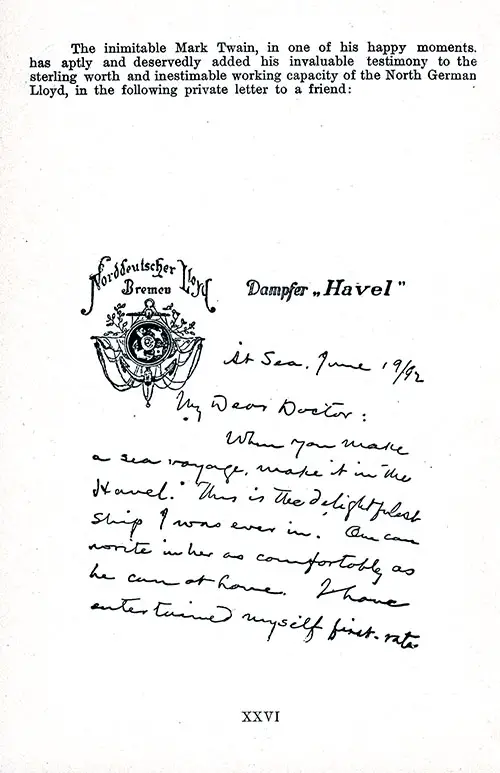 The inimitable Mark Twain, in one of his happy moments.
has aptly and deservedly added his invaluable testimony to the
sterling worth and inestimable working capacity of the North German
Lloyd, in the following private letter to a friend:
Norddeutscher Lloyd
Bremen
Dampfer „Havel"
At Sea, June 19/92
My Dear Doctor:
When you make
a sea voyage, make it in "the
Havel." This is the delightfulest
ship I was ever in. One can
write in her as comfortably as
he can at home. I have
entertained myself first-rate
XXVI